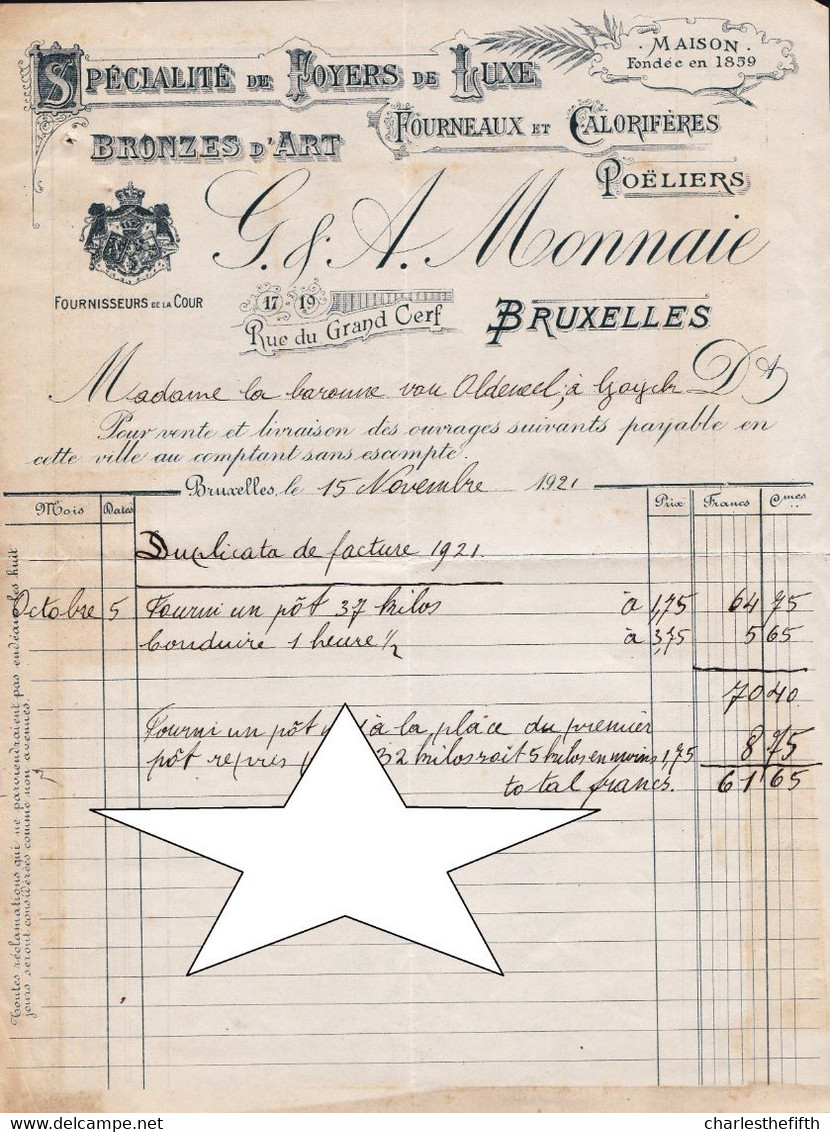 MAISON.
Fondée en 1859
SPÉCIALITÉ DE FOYERS DE LUXE
BRONZES D'ART
FOURNEAUX ET CALORIFÈRES
POËLIERS
G. & A. Monnaie
FOURNISSEURS DE LA COUR
17 19
Rue du Grand Cerf
BRUXELLES
Madame la baronne van Oldeneel, à Dt
Pour vente et livraison des ouvrages suivants payable en
cette ville au comptant sans escompte.
Bruxelles, le 15 Novembre 1921
Mois Dates Prix Francs Cmes
Duplicata de facture 1921.
Octobre 5 Fourni un pôt 37 kilos à 1,75 64 75
Conduire 1 heure 1/2 à 3,75 5 65
70 40
Fourni un pôt à la place du premier
pôt repris 32 kilos soit 5 kilos en moins 1,75 8 75
total francs. 61 65
Toutes réclamations qui ne parviendraient pas endéans les huit
jours seront considérées comme non avenues.
charlesthefifth